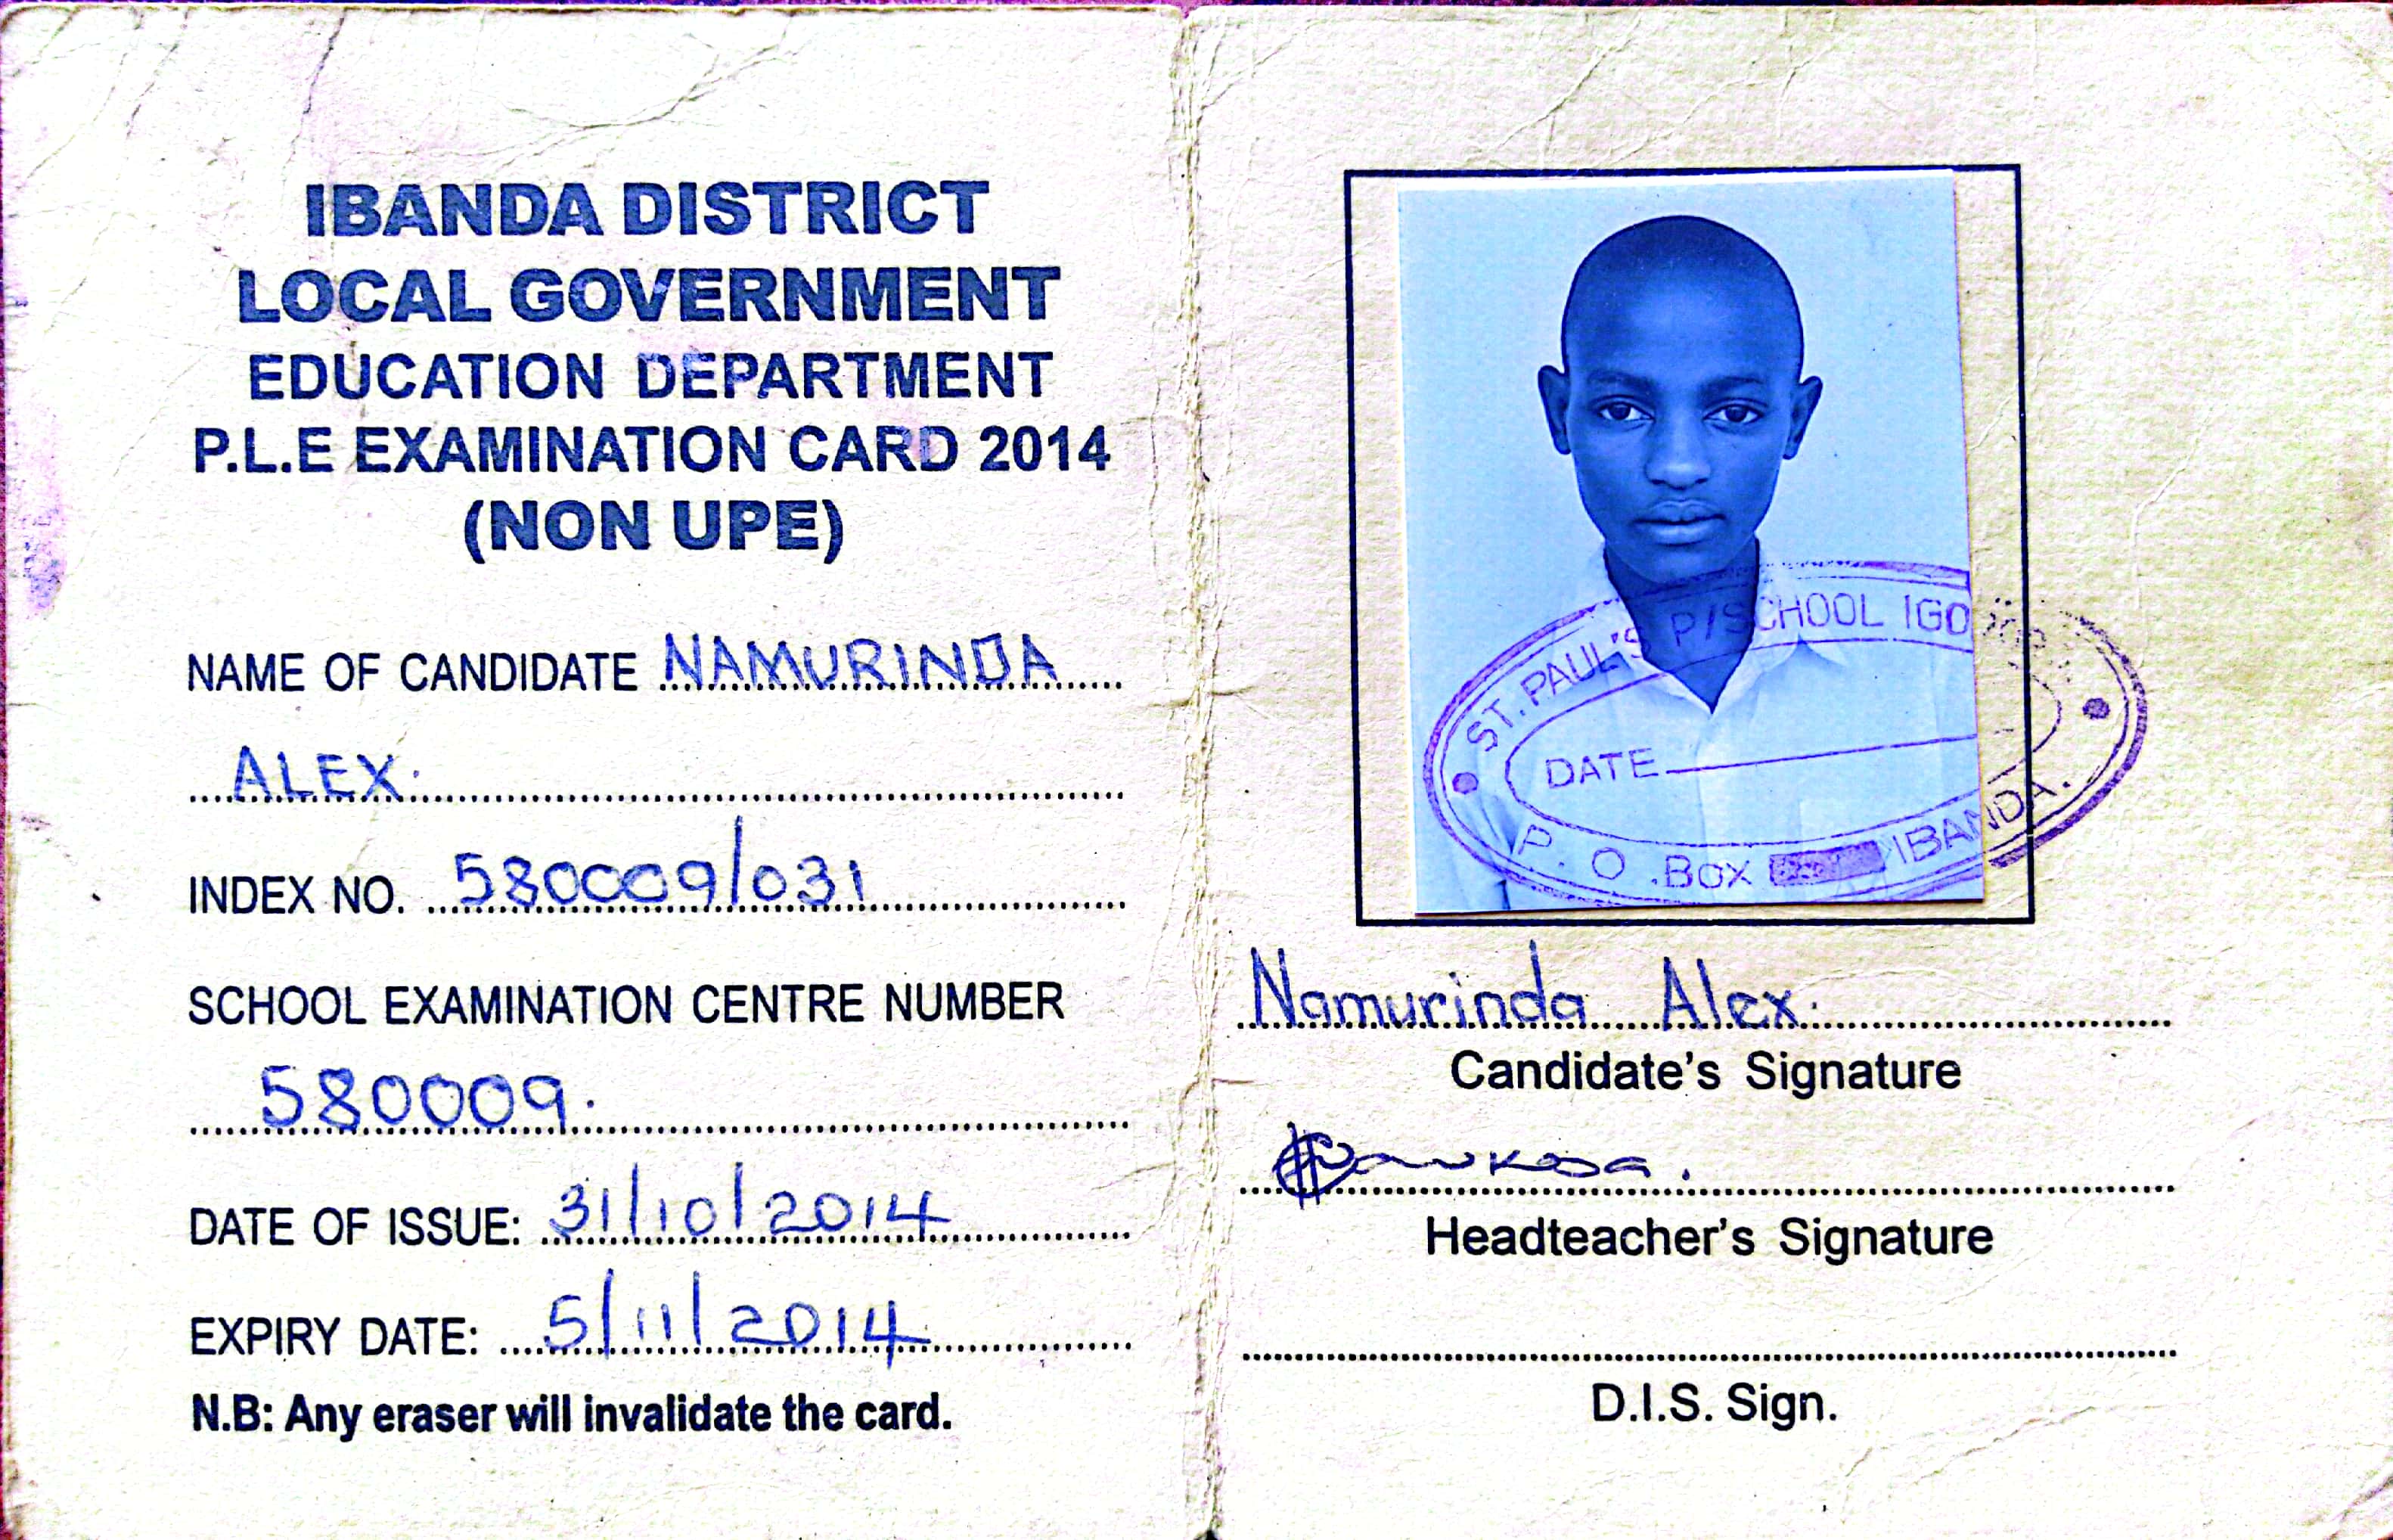 IBANDA DISTRICT
LOCAL GOVERNMENT
EDUCATION DEPARTMENT
P.L.E EXAMINATION CARD 2014
(NON UPE)
NAME OF CANDIDATE NAMURINDA
ALEX.
INDEX NO. 580009/031
SCHOOL EXAMINATION CENTRE NUMBER
580009.
DATE OF ISSUE: 31/10/2014
EXPIRY DATE: 5/11/2014
N.B: Any eraser will invalidate the card.
ST. PAUL'S P/SCHOOL
DATE
P. O. BOX IBANDA.
Namurinda Alex.
Candidate's Signature
Headteacher's Signature
D.I.S. Sign.